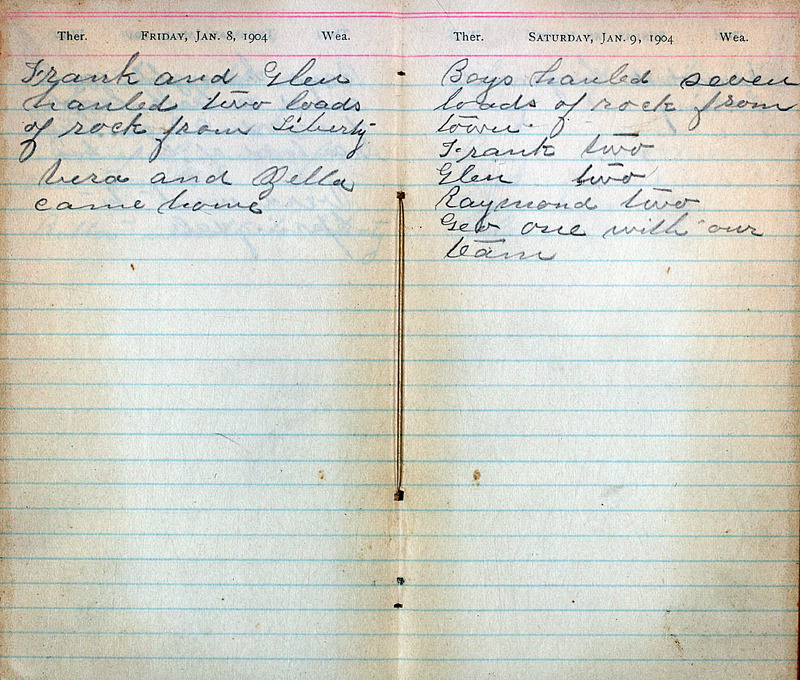 Ther. Friday, Jan. 8, 1904 Wea.
Frank and Glen
hauled two loads
of rock from Liberty
Vera and Zella
came home
Ther. Saturday, Jan. 9, 1904 Wea.
Boys hauled seven
loads of rock from
town.
Frank two
Glen two
Raymond two
Geo one with our
team